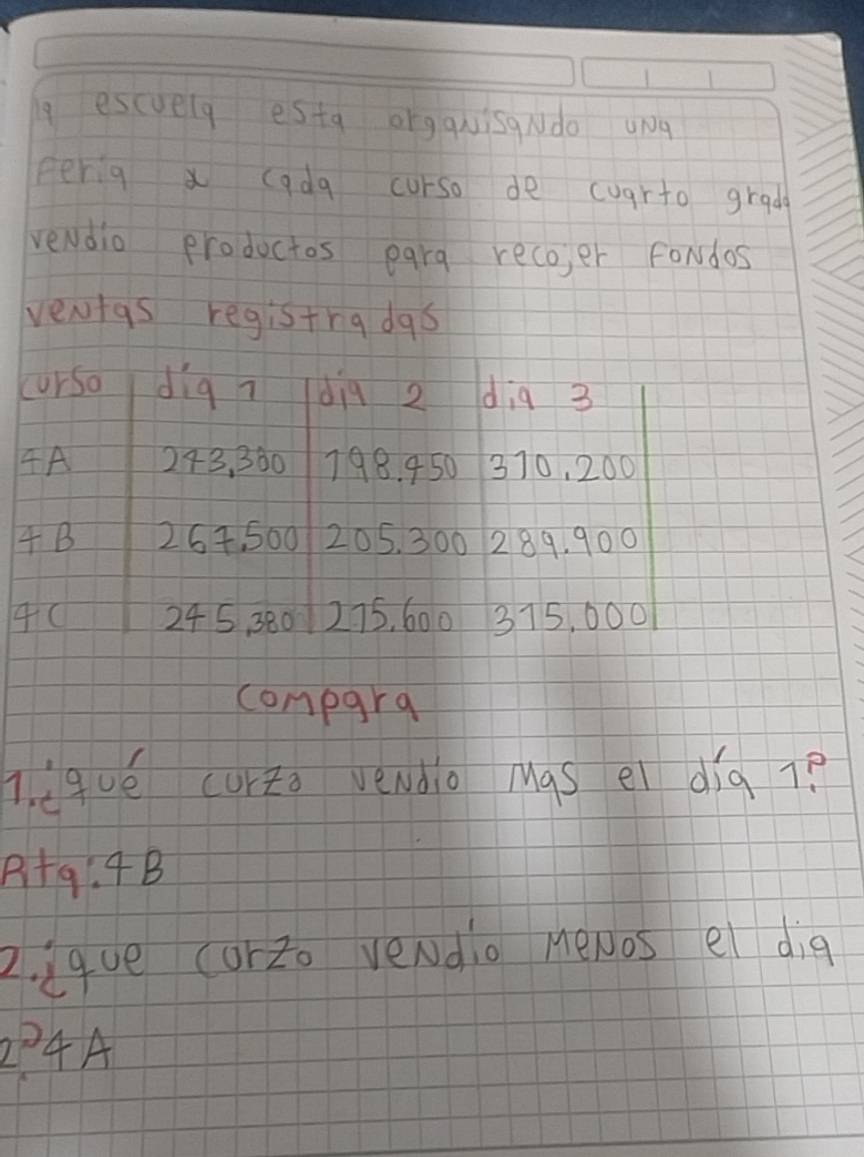 la escuela esta organisando una
feria y cada curso de cuarto grado
vendio productos para recojer fondos
ventas registradas
curso día 1 dia 2 dia 3
4A 243,300 198.450 310.200
4B 267,500 205.300 289.900
4C 245,380 215.600 315.000
compara
1.¿qué curzo vendio mas el día 1?
Rta:4B
2.¿que curzo vendio menos el dia
2?4A